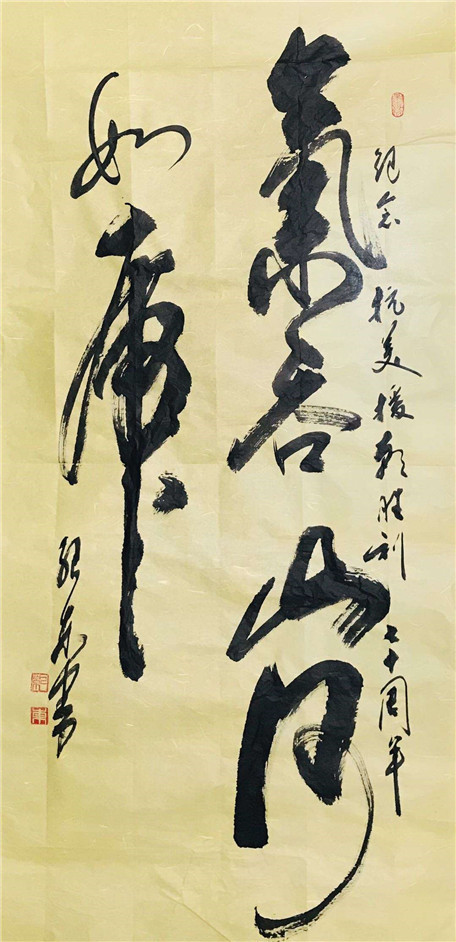 纪念 抗美援朝胜利 七十周年
氣吞山河
如虎
东书